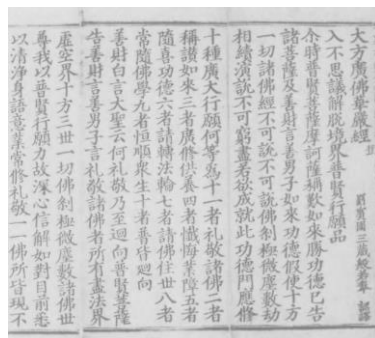 大方廣佛華嚴經
入不思議解脫境界普賢行願品
罽賓國三藏般若奉 詔譯
尒時普賢菩薩摩訶薩稱歎如來勝功德已告
諸菩薩及善財言善男子如來功德假使十方
一切諸佛經不可說不可說佛剎極微塵數劫
相續演說不可窮盡若欲成就此功德門應修
十種廣大行願何等為十一者礼敬諸佛二者
稱讚如來三者廣修供養四者懺悔業障五者
隨喜功德六者請轉法輪七者請佛住世八者
常隨佛學九者恒順衆生十者普皆廻向
善財白言大聖云何礼敬乃至迴向普賢菩薩
告善財言善男子言礼敬諸佛者所有盡法界
虛空界十方三世一切佛剎極微塵數諸佛世
尊我以普賢行願力故深心信解如對目前悉
以清淨身語意業常修礼敬一一佛所皆現不